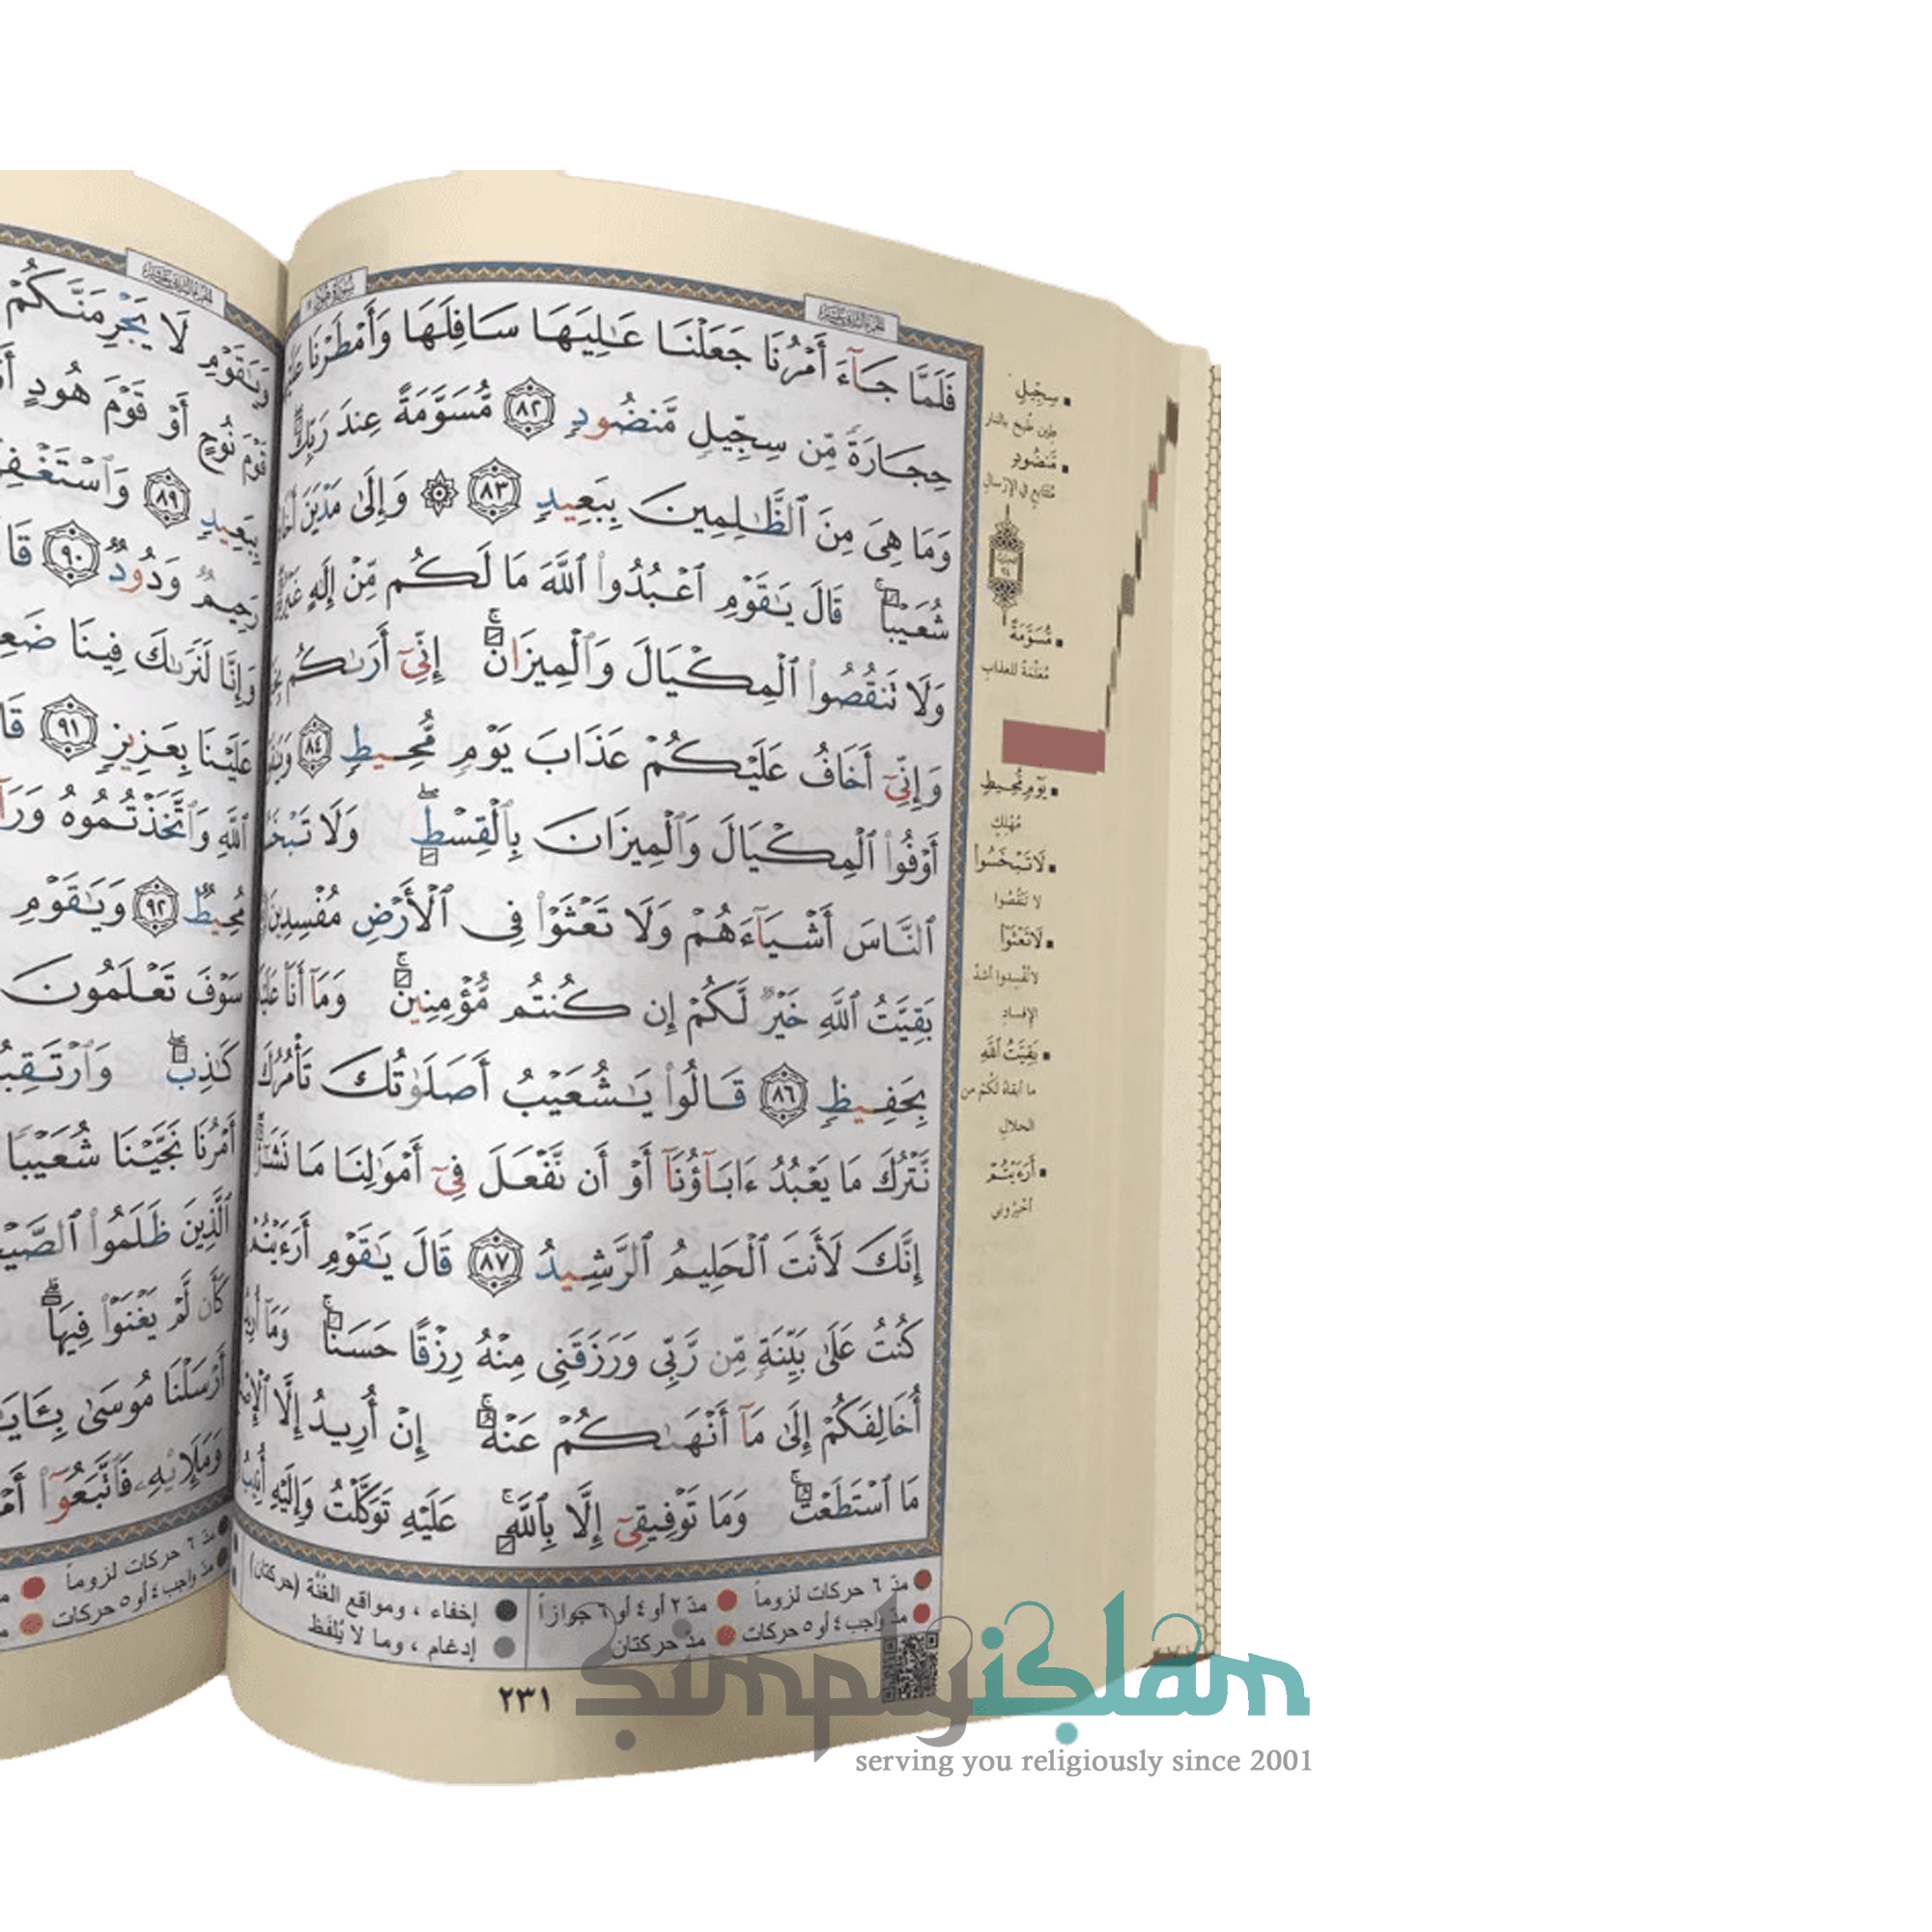 فَلَمَّا جَآءَ أَمْرُنَا جَعَلْنَا عَٰلِيَهَا سَافِلَهَا وَأَمْطَرْنَا
حِجَارَةً مِّن سِجِّيلٍ مَّنضُودٍ ٨٢ مُّسَوَّمَةً عِندَ رَبِّكَ
وَمَا هِىَ مِنَ ٱلظَّٰلِمِينَ بِبَعِيدٍ ٨٣ ۞ وَإِلَىٰ مَدْيَنَ
شُعَيْبًا ۚ قَالَ يَٰقَوْمِ ٱعْبُدُوا۟ ٱللَّهَ مَا لَكُم مِّنْ إِلَٰهٍ
وَلَا تَنقُصُوا۟ ٱلْمِكْيَالَ وَٱلْمِيزَانَ ۚ إِنِّىٓ أَرَىٰكُم
وَإِنِّىٓ أَخَافُ عَلَيْكُمْ عَذَابَ يَوْمٍ مُّحِيطٍ ٨٤
أَوْفُوا۟ ٱلْمِكْيَالَ وَٱلْمِيزَانَ بِٱلْقِسْطِ ۖ وَلَا
ٱلنَّاسَ أَشْيَآءَهُمْ وَلَا تَعْثَوْا۟ فِى ٱلْأَرْضِ مُفْسِدِينَ
بَقِيَّتُ ٱللَّهِ خَيْرٌ لَّكُمْ إِن كُنتُم مُّؤْمِنِينَ ۚ وَمَآ أَنَا۠
بِحَفِيظٍ ٨٦ قَالُوا۟ يَٰشُعَيْبُ أَصَلَوٰتُكَ تَأْمُرُكَ
نَّتْرُكَ مَا يَعْبُدُ ءَابَآؤُنَآ أَوْ أَن نَّفْعَلَ فِىٓ أَمْوَٰلِنَا مَا
إِنَّكَ لَأَنتَ ٱلْحَلِيمُ ٱلرَّشِيدُ ٨٧ قَالَ يَٰقَوْمِ
كُنتُ عَلَىٰ بَيِّنَةٍ مِّن رَّبِّى وَرَزَقَنِى مِنْهُ رِزْقًا حَسَنًا ۚ وَمَآ
أُخَالِفَكُمْ إِلَىٰ مَآ أَنْهَىٰكُمْ عَنْهُ ۚ إِنْ أُرِيدُ إِلَّا
مَا ٱسْتَطَعْتُ ۚ وَمَا تَوْفِيقِىٓ إِلَّا بِٱللَّهِ ۚ عَلَيْهِ تَوَكَّلْتُ وَإِلَيْهِ أُنِيبُ
سِجِّيلٍ
طين طُبخ بالنار
مَّنضُودٍ
مُتتابع في الإرسال
مُّسَوَّمَةً
مُعَلَّمَةً للعذاب
يَوْمٍ مُّحِيطٍ
مُهْلِكٍ
لَا تَبْخَسُوا۟
لا تَنْقُصُوا
لَا تَعْثَوْا۟
لا تُفْسِدوا أشدَّ
الإفساد
بَقِيَّتُ ٱللَّهِ
ما أبقاهُ لكُمْ من
الحلال
أَرَءَيْتُمْ
أخبروني
مدّ ٦ حركات لزوماً مدّ ٢ أو ٤ أو ٦ جوازاً
مدّ واجب ٤ أو ٥ حركات مدّ حركتان
إخفاء ، ومواقع الغُنَّة (حركتان)
إدغام ، وما لا يُلفَظ
٢٣١
وَيَٰقَوْمِ لَا يَجْرِمَنَّكُمْ
قَوْمَ نُوحٍ أَوْ قَوْمَ هُودٍ
بِبَعِيدٍ ٨٩
رَحِيمٌ وَدُودٌ ٩٠
وَإِنَّا لَنَرَىٰكَ فِينَا
عَلَيْنَا بِعَزِيزٍ ٩١
ٱللَّهِ وَٱتَّخَذْتُمُوهُ
مُحِيطٌ ٩٢ وَيَٰقَوْمِ
سَوْفَ تَعْلَمُونَ
كَٰذِبٌ ۖ
أَمْرُنَا نَجَّيْنَا شُعَيْبًا
ٱلَّذِينَ ظَلَمُوا۟
كَأَن لَّمْ يَغْنَوْا۟ فِيهَآ ۗ
أَرْسَلْنَا مُوسَىٰ
وَمَلَإِي۟هِۦ فَٱتَّبَعُوٓا۟
مدّ ٦ حركات لزوماً
مدّ واجب ٤ أو ٥ حركات
simplyislam
serving you religiously since 2001